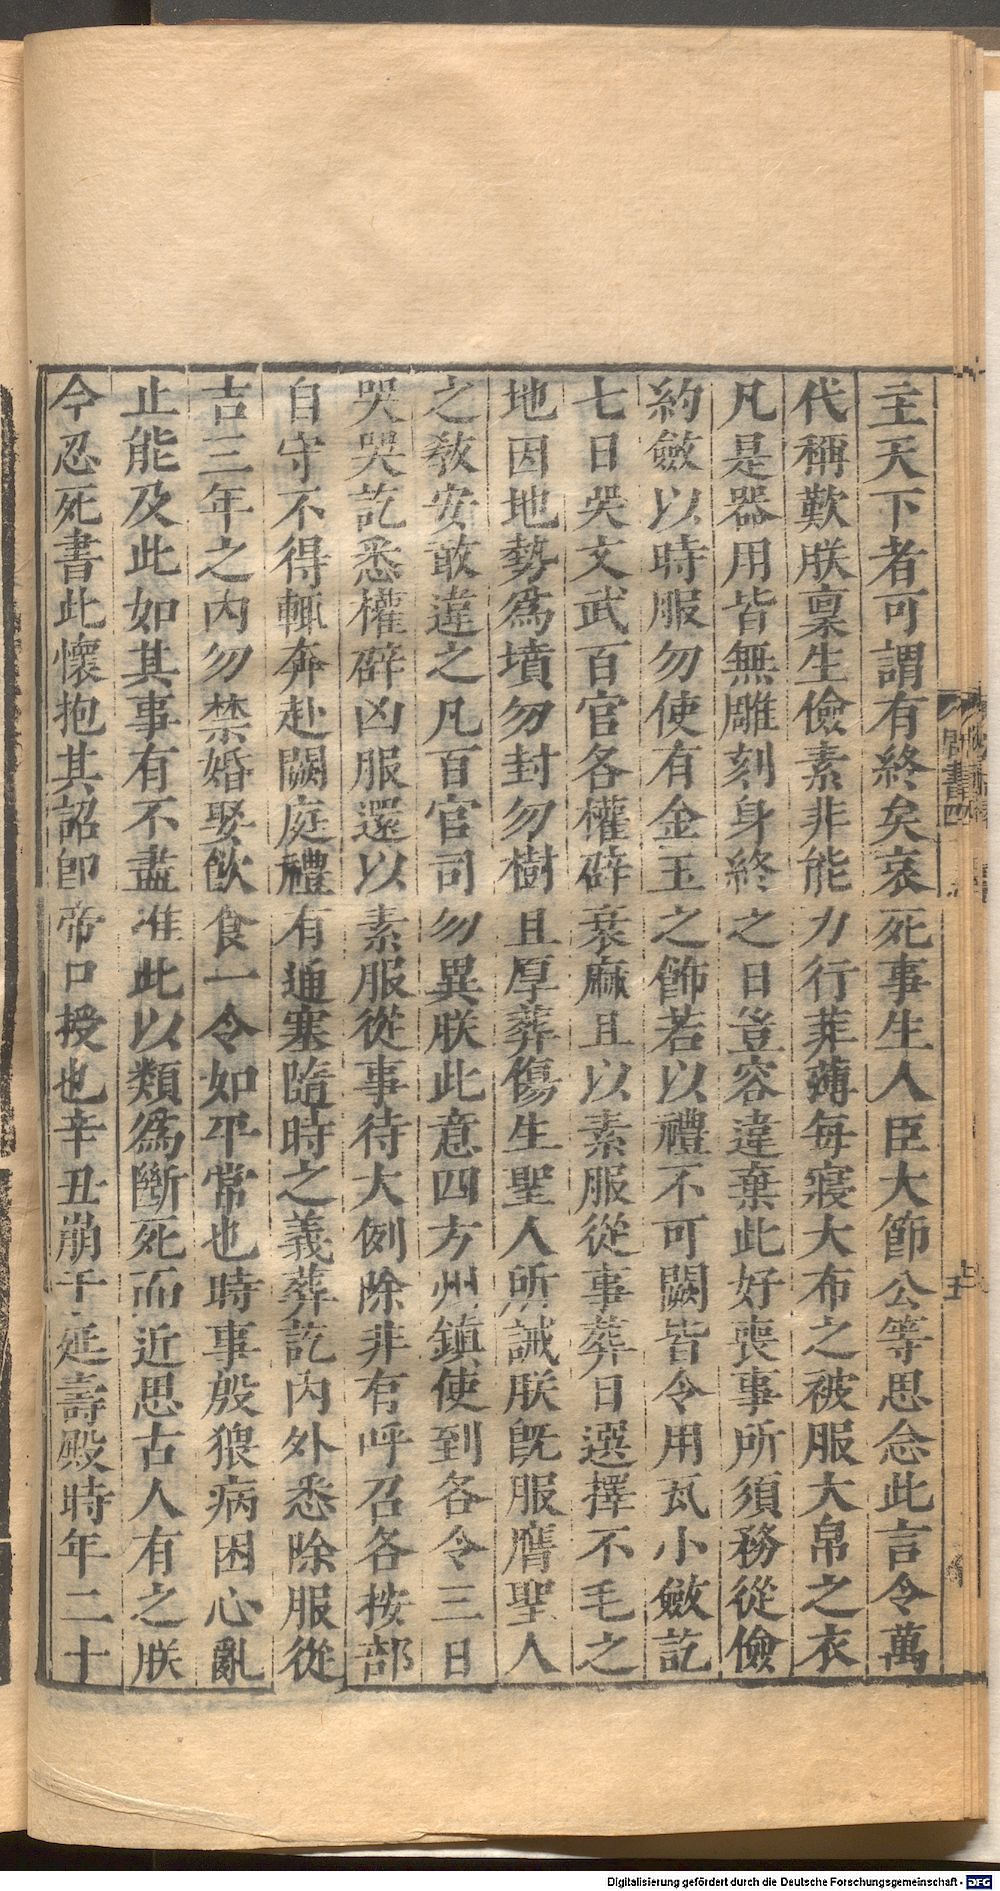 主天下者可謂有終矣哀死事生人臣大節公等思念此言令萬
代稱歎朕禀生儉素非能力行菲薄每寢大布之被服大帛之衣
凡是器用皆無雕刻身終之日豈容違棄此好喪事所須務從儉
約斂以時服勿使有金玉之飾若以禮不可闕皆令用瓦小斂訖
七日哭文武百官各權辟衰麻且以素服從事葬日選擇不毛之
地因地勢爲墳勿封勿樹且厚葬傷生聖人所誡朕旣服膺聖人
之敎安敢違之凡百官司勿異朕此意四方州鎮使到各令三日
哭哭訖悉權辟凶服還以素服從事待大例除非有呼召各按部
自守不得輒奔赴闕庭禮有通塞隨時之義葬訖內外悉除服從
吉三年之內勿禁婚娶飲食一令如平常也時事殷猥病困心亂
止能及此如其事有不盡准此以類爲斷死而近思古人有之朕
今忍死書此懷抱其詔卽帝口授也辛丑崩于延壽殿時年二十
周書四
Digitalisierung gefördert durch die Deutsche Forschungsgemeinschaft - DFG